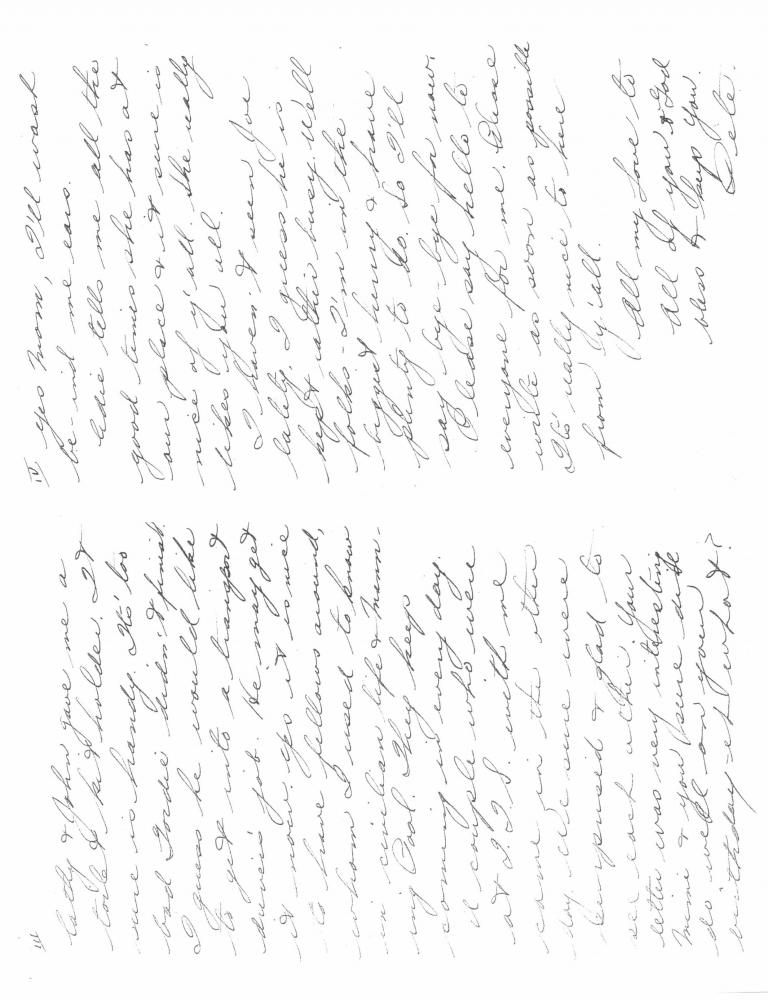 III
lately & John gave me a
toilet kit holder. It
sure is handy. It's too
bad Gordie didn't finish.
I guess he would like
to get into a transport
driver's job. He may get
it now. Yes it is nice
to have fellows around,
whom I used to know
in civilian life & Mum-
my Pool. They keep
coming in every day.
A couple who were
at I.T.S. with me
came in the other
day. We sure were
surprised & glad to
see each other. Your
letter was very interesting
Mimi & you sure did
do well on your
birthday - eh what?
IV
Yes Mom, I'll wash
be-ind me ears.
Edie tells me all the
good times she has at
our place & it sure is
nice of y'all. She really
likes you all.
I haven't seen Joe
lately. I guess he is
kept rather busy. Well
folks - I'm in the
biggest hurry & have
plenty to do. So I'll
say bye-bye for now.
Please say hello to
everyone for me. Please
write as soon as possible
It's really nice to hear
from y'all.
All my love to
all of you & God
bless & keep you.
Pete.